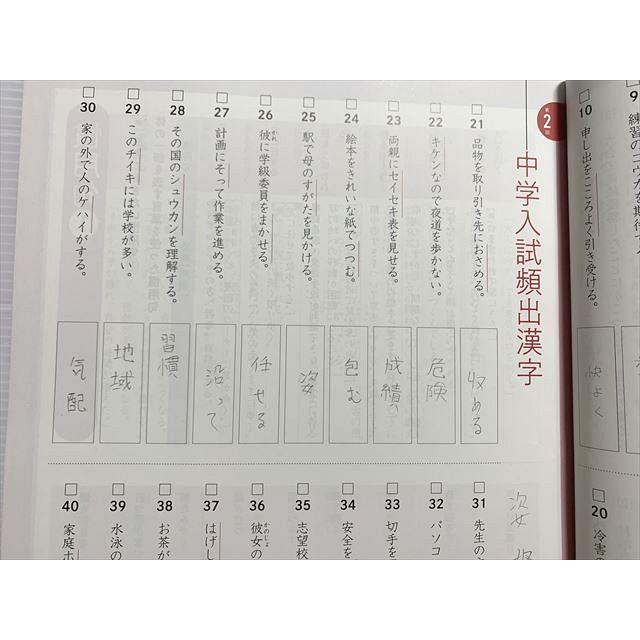 第2
中学入試頻出漢字
21 品物を取り引き先におさめる。
収める
22 キケンなので夜道を歩かない。
危険
23 両親にセイセキ表を見せる。
成績
24 絵本をきれいな紙でつつむ。
包む
25 駅で母のすがたを見かける。
姿
26 彼に学級委員をまかせる。
かれ
任せる
27 計画にそって作業を進める。
沿って
28 その国のシュウカンを理解する。
習慣
29 このチイキには学校が多い。
地域
30 家の外で人のケハイがする。
気配
姿 収
31 先生の
32 パソコ
33 切手を
34 安全を
35 志望校
36 彼女の
かのじょ
37 はげし
38 お茶が
39 水泳の
40 家庭ホ
9 練習の
10 申し出をこころよく引き受ける。
快よく
20 冷害の